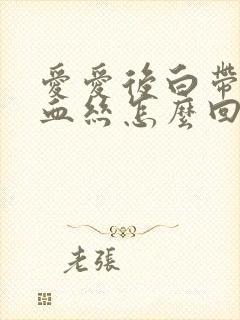 愛愛後白帶
血絲怎麼回
老張